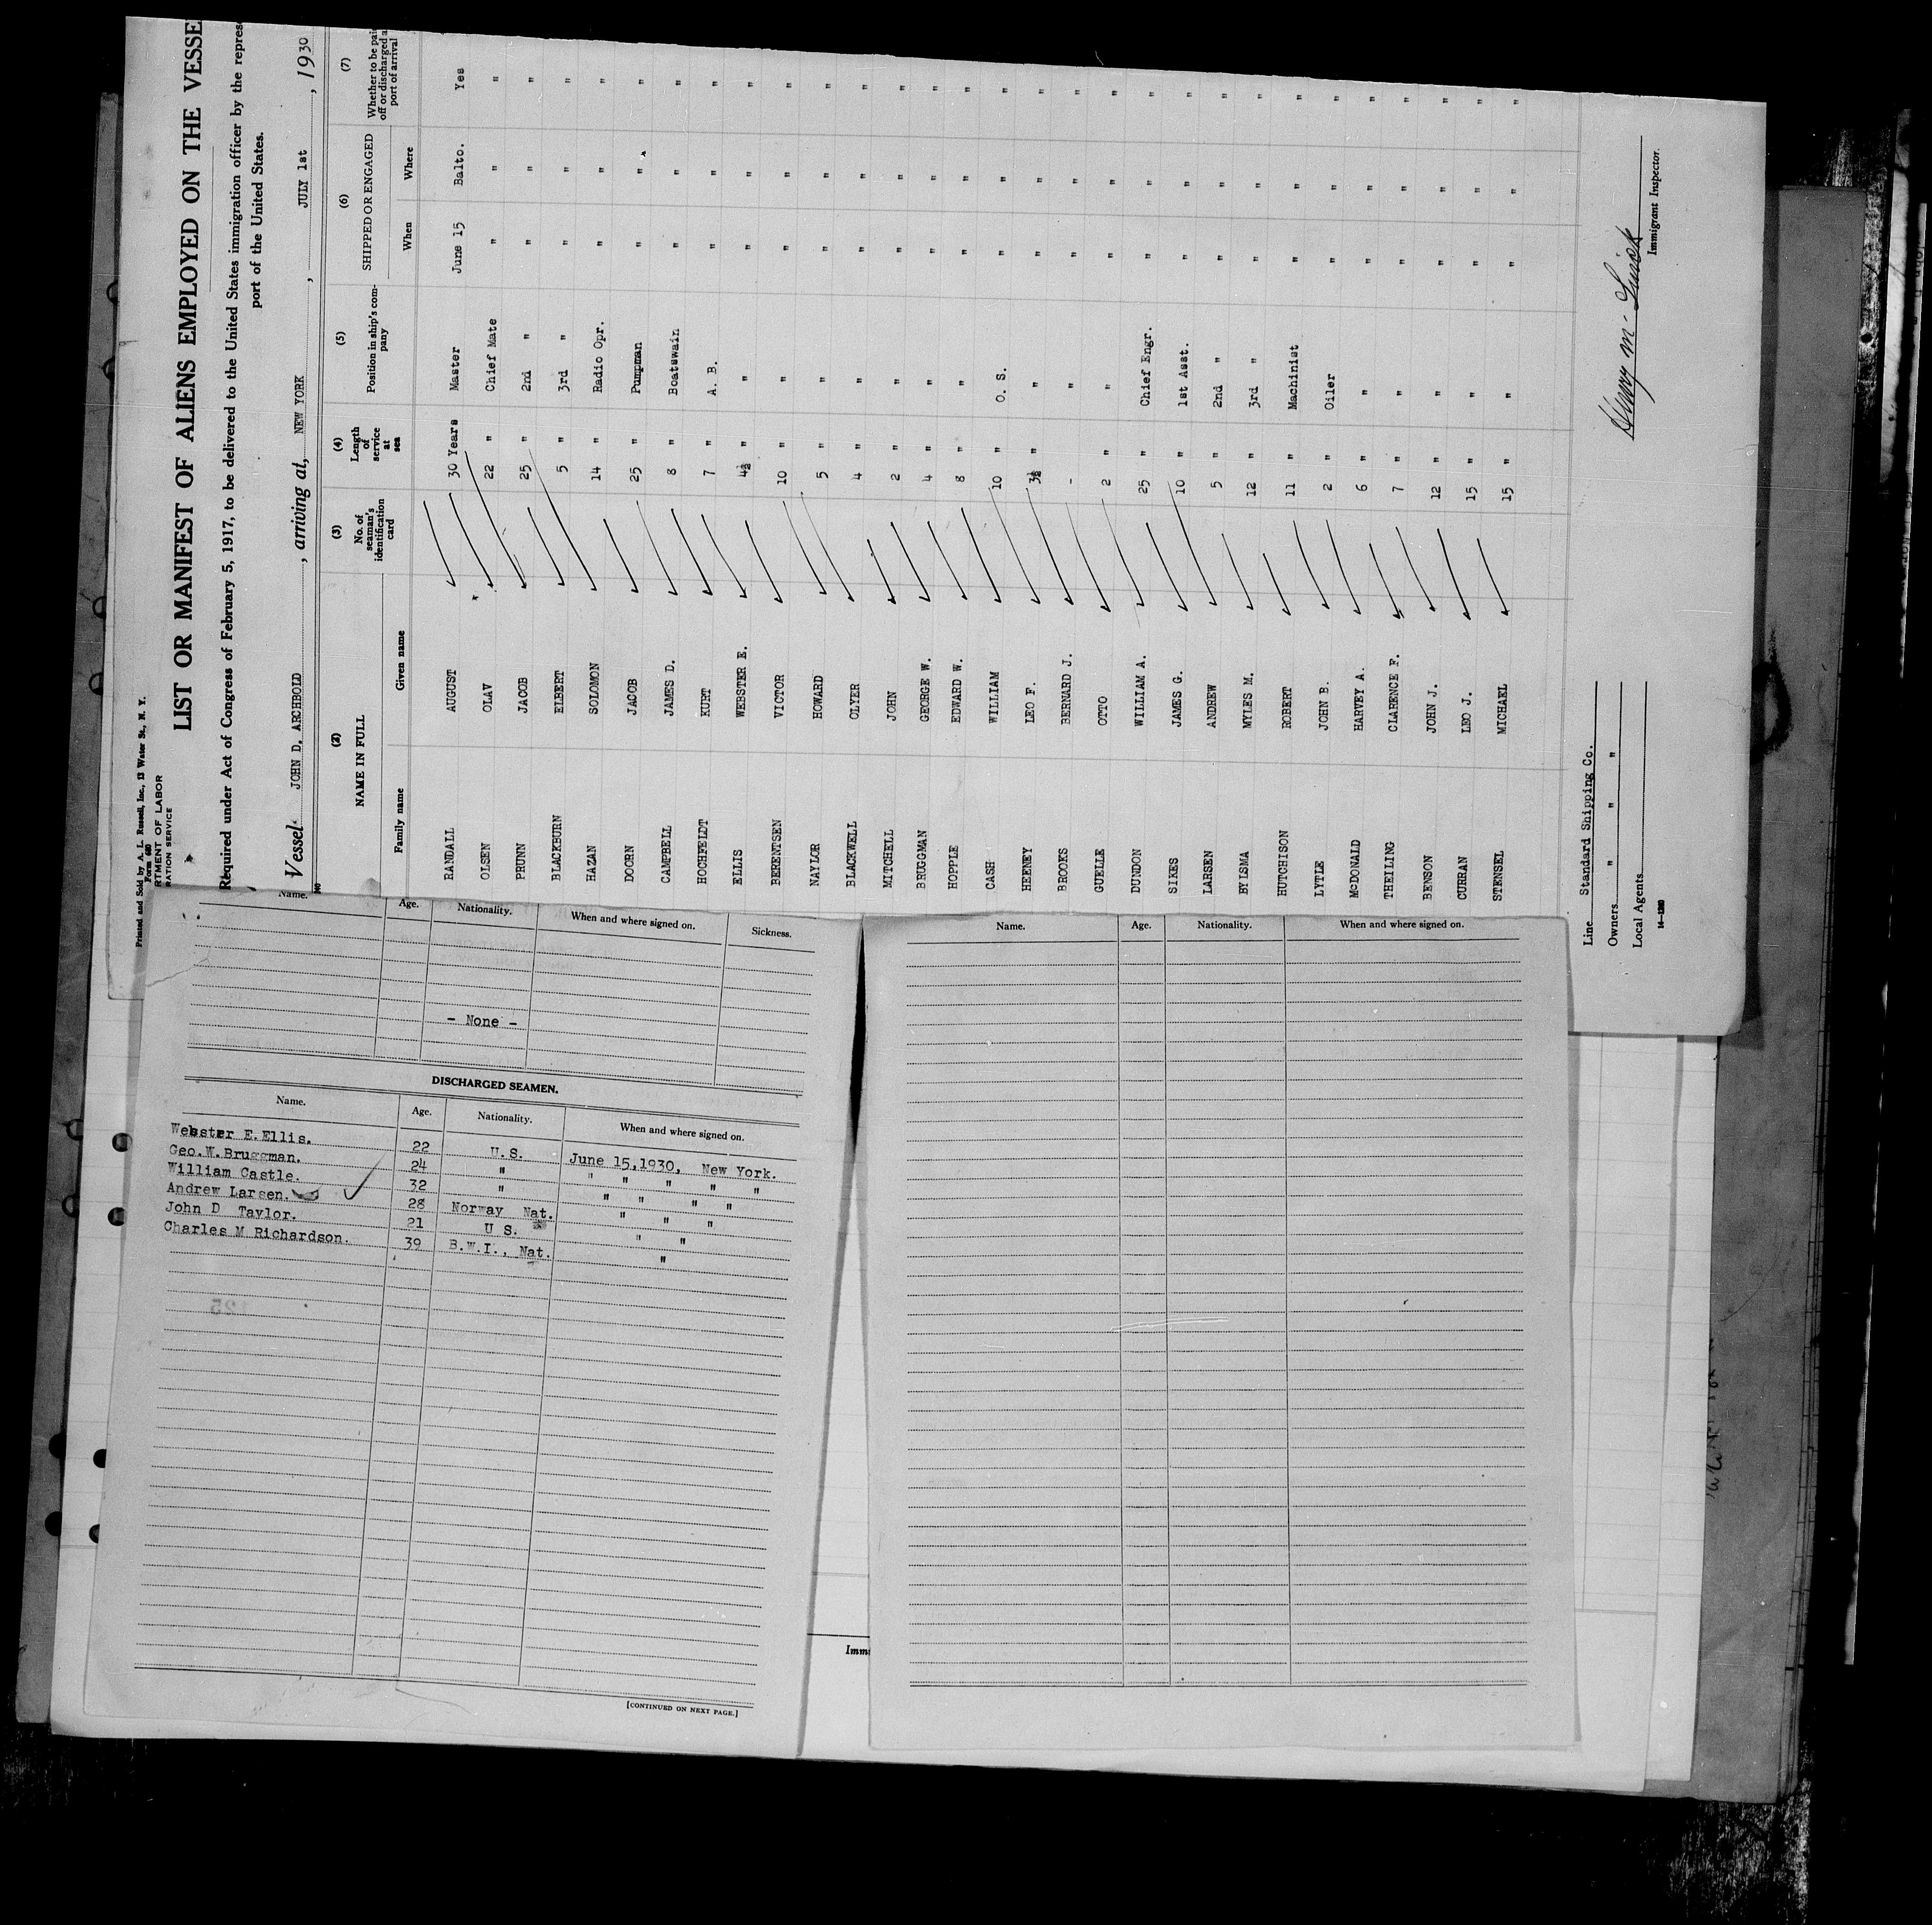 Printed and Sold by A. L. Russell, Inc., 13 Water St., N. Y.
Form 680
RTMENT OF LABOR
RATION SERVICE
LIST OR MANIFEST OF ALIENS EMPLOYED ON THE VESSE
Required under Act of Congress of February 5, 1917, to be delivered to the United States immigration officer by the repres
port of the United States.
Vessel JOHN D. ARCHBOLD, arriving at, NEW YORK, JULY 1st, 1930
(2) (3) (4) (5) (6) (7)
NAME IN FULL No. of seaman's identification card Length of service at sea Position in ship's company SHIPPED OR ENGAGED Whether to be paid off or discharged a port of arrival
Family name Given name When Where
RANDALL AUGUST 30 Years Master June 15 Balto. Yes
OLSEN OLAV 22 " Chief Mate " " "
PRUNN JACOB 25 " 2nd " " " "
BLACKBURN ELBERT 5 " 3rd " " " "
HAZAN SOLOMON 14 " Radio Opr. " " "
DOORN JACOB 25 " Pumpman " " "
CAMPBELL JAMES D. 8 " Boatswain " " "
HOCHFELDT KURT 7 " A. B. " " "
ELLIS WEBSTER E. 4½ " " " " "
BERENTSEN VICTOR 10 " " " " "
NAYLOR HOWARD 5 " " " " "
BLACKWELL CLYER 4 " " " " "
MITCHELL JOHN 2 " " " " "
BRUGGMAN GEORGE W. 4 " " " " "
HOPPLE EDWARD W. 8 " " " " "
CASH WILLIAM 10 " O. S. " " "
HEENEY LEO F. 3½ " " " " "
BROOKS BERNARD J. - " " " "
GUELLE OTTO 2 " " " " "
DUNDON WILLIAM A. 25 " Chief Engr. " " "
SIKES JAMES G. 10 " 1st Asst. " " "
LARSEN ANDREW 5 " 2nd " " " "
BYLSMA MYLES M. 12 " 3rd " " " "
HUTCHISON ROBERT 11 " Machinist " " "
LYTLE JOHN B. 2 " Oiler " " "
McDONALD HARVEY A. 6 " " " " "
THEILING CLARENCE F. 7 " " " " "
BENSON JOHN J. 12 " " " " "
CURRAN LEO J. 15 " " " " "
STENSEL MICHAEL 15 " " " " "
Line Standard Shipping Co.
Owners " " "
Local Agents
14—1260
Immigrant Inspector.
Name. Age. Nationality. When and where signed on. Sickness.
- None -
DISCHARGED SEAMEN.
Name. Age. Nationality. When and where signed on.
Webster E. Ellis. 22 U.S. June 15,1930, New York.
Geo.W.Bruggman. 24 " " " " " "
William Castle. 32 " " " " "
Andrew Larsen. 28 Norway Nat. " " "
John D Taylor. 21 U S. " "
Charles M Richardson. 39 B.W.I., Nat. "
[CONTINUED ON NEXT PAGE.]
Name. Age. Nationality. When and where signed on.